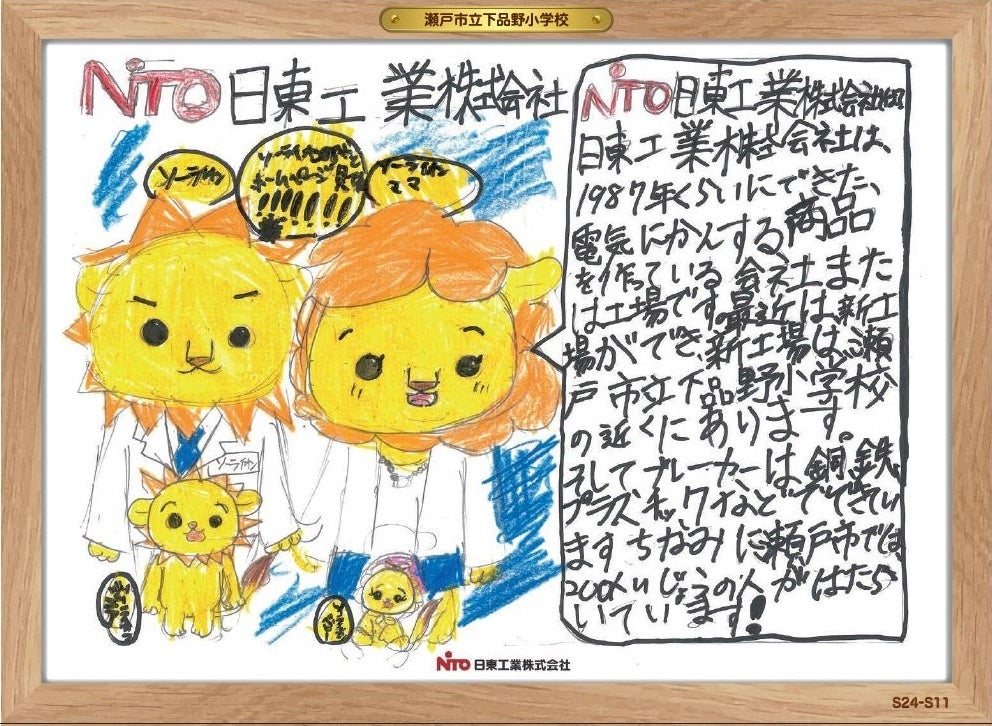 瀬戸市立下品野小学校
NITO 日東工業株式会社
ソーライオン
ホームページ見てね
!!!!!!!
ソーライオン
ママ
ソーライオン
NITO 日東工業株式会社
日東工業株式会社は、
1987年くらいにできた、
電気にかんする商品
を作っている会社また
は工場です。最近は、新工
場ができ、新工場は、瀬
戸市立下品野小学校
の近くにあります。
そしてブレーカーは、銅、鉄、
プラスチックなどでできてい
ます ちなみに瀬戸市では、
200人いじょうの人がはたら
いています!
NITO 日東工業株式会社
S24-S11